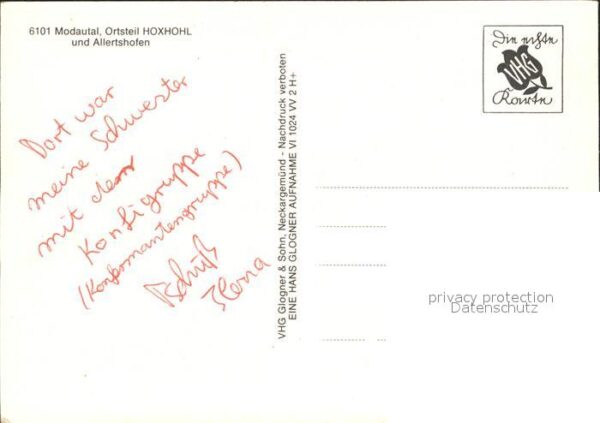 6101 Modautal, Ortsteil HOXHOHL
und Allertshofen
Dort war
meine Schwester
mit der
Konfigruppe
(Konfermantengruppe)
Tschüß
VHG Glogner & Sohn, Neckargemünd - Nachdruck verboten
EINE HANS GLOGNER AUFNAHME VI 1024 VV 2 H+
Die echte
VHG
Karte
privacy protection
Datenschutz